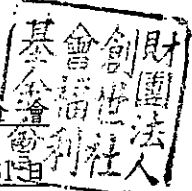 財團法人
創世社
會福利
基金會
會
日